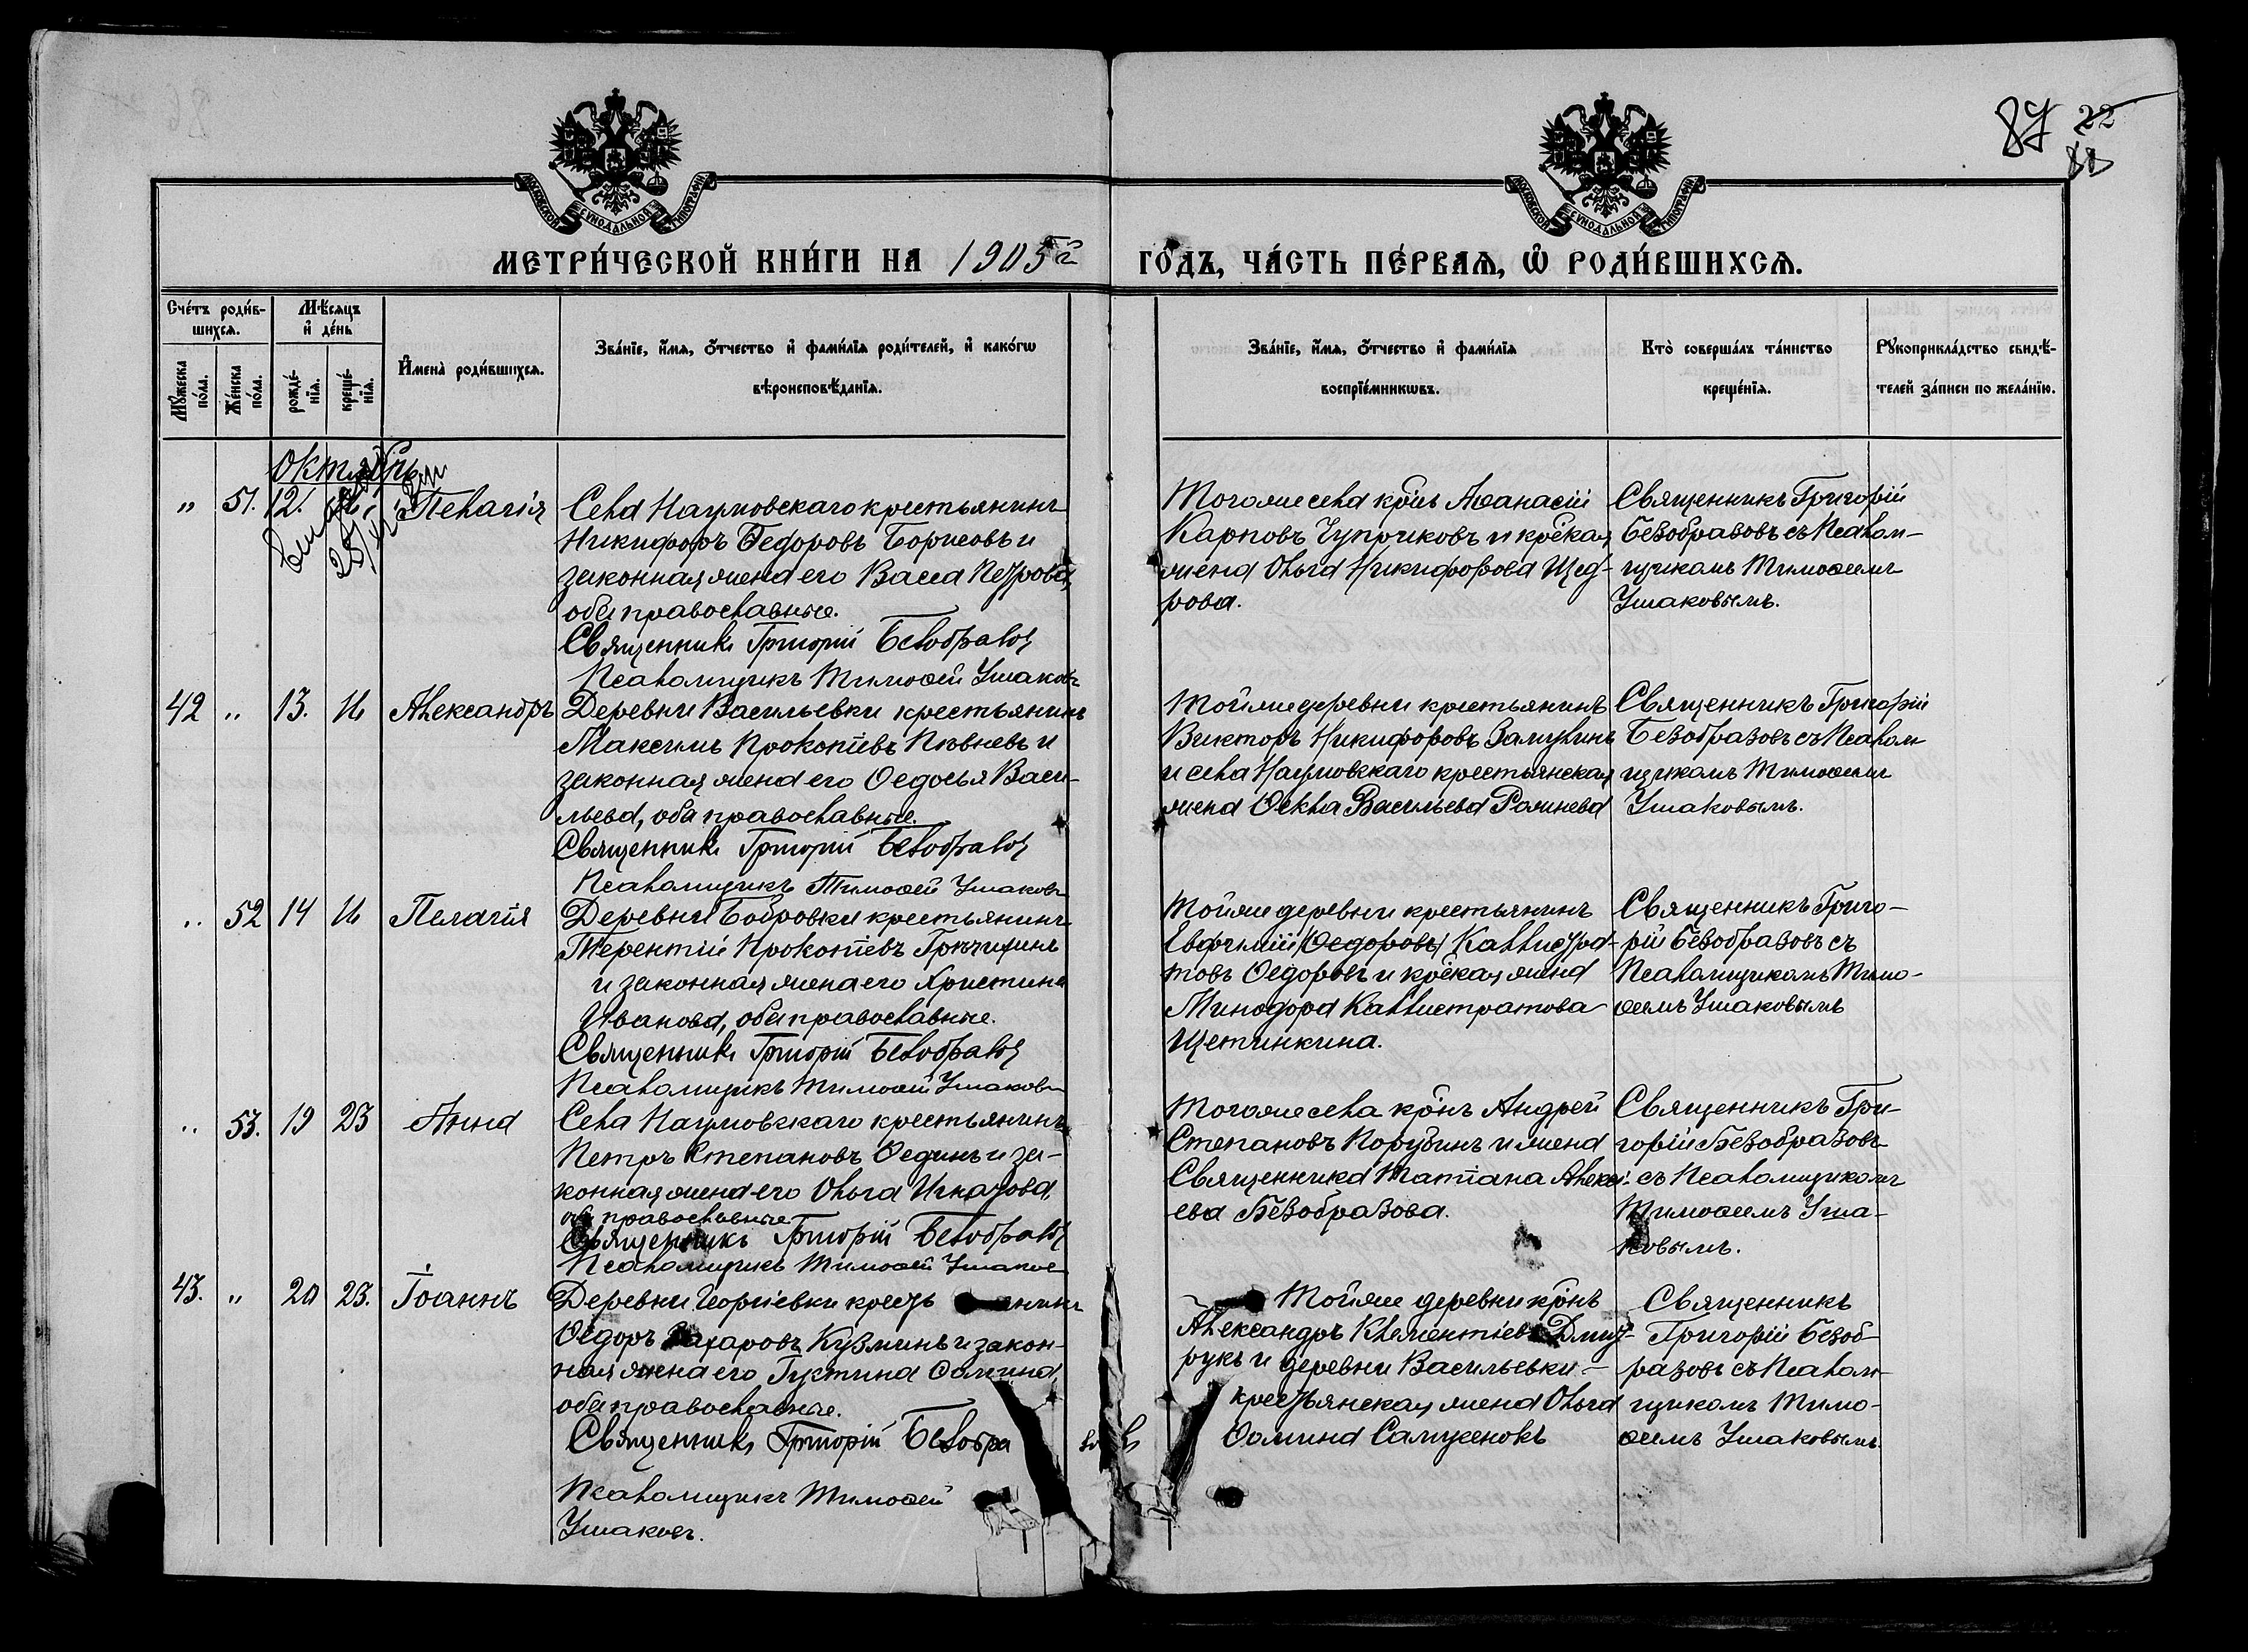 87 22
МОСКОВСКОЙ СѴНОДАЛЬНОЙ ТИПОГРАФІИ
МОСКОВСКОЙ СѴНОДАЛЬНОЙ ТИПОГРАФІИ
МЕТРИ́ЧЕСКОЙ КНИ́ГИ НА 1905й
ГО́ДЪ, ЧА́СТЬ ПЕ́РВАѦ, Ѡ҆ РОДИ́ВШИХСѦ.
Сче́тъ роди́в-
шихсѧ.
Мꙋ́жеска по́ла.
Же́нска по́ла.
Мѣ́сѧцъ
и҆ де́нь
рожде́-
нїѧ.
креще́-
нїѧ.
И҆мена̀ роди́вшихсѧ.
Зва́нїе, и҆́мѧ, ѻ҆́тчество и҆ фами́лїѧ роди́телей, и҆ како́гѡ
вѣроисповѣ́данїѧ.
Зва́нїе, и҆́мѧ, ѻ҆́тчество и҆ фами́лїѧ
воспрїе́мникѡвъ.
Кто̀ соверша́лъ та́инство
креще́нїѧ.
Рꙋкоприкла́дство свидѣ́-
телей за́писи по жела́нїю.
Октябрь
„ 51. 12. Пелагія
Села Наумовскаго крестьянинъ
Никифоръ Ѳедоровъ Борисовъ и
законная жена его Васса Петрова,
оба православные.
Священникъ Григорій Безобразовъ
Псаломщикъ Тимоѳей Ушаковъ
Тогоже села кр̃нъ Аѳанасій
Карповъ Чуприковъ и кр̃ская
жена Ольга Никифорова Щед-
рова.
Священникъ Григорій
Безобразовъ съ Псалом-
щикомъ Тимоѳеемъ
Ушаковымъ.
42 „ 13. 16 Александръ
Деревни Васильевки крестьянинъ
Максимъ Прокопіевъ Пѣвневъ и
законная жена его Ѳедосья Васи-
льева, оба православные.
Священникъ Григорій Безобразовъ
Псаломщикъ Тимоѳей Ушаковъ
Тойже деревни крестьянинъ
Викторъ Никифоровъ
и села Наумовскаго крестьянская
жена Ѳекла Васильева
Священникъ Григорій
Безобразовъ съ Псалом
щикомъ Тимоѳеемъ
Ушаковымъ.
„ 52 14 16 Пелагія
Деревни Бобровки крестьянинъ
Терентій Прокопіевъ
и законная жена его Христина
Иванова, оба православные.
Священникъ Григорій Безобразовъ
Псаломщикъ Тимоѳей Ушаковъ
Тойже деревни крестьянинъ
Евфимій (Ѳедоровъ) Каллистра-
товъ Ѳедоровъ и кр̃ская жена
Минодора Каллистратова
Щетинкина.
Священникъ Григо-
рій Безобразовъ съ
Псаломщикомъ Тимо-
ѳеемъ Ушаковымъ
„ 53. 19 23 Анна
Села Наумовскаго крестьянинъ
Петръ Степановъ Ѳединъ и за-
конная жена его Ольга Игнатова,
оба православные
Священникъ Григорій Безобразовъ
Псаломщикъ Тимоѳей Ушаковъ
Тогоже села кр̃нъ Андрей
Степановъ Порубинъ и жена
Священника Татіана Алексі-
ева Безобразова.
Священникъ Гри-
горій Безобразовъ
съ Псаломщикомъ
Тимоѳеемъ Уша-
ковымъ.
43. „ 20 23. Іоаннъ
Деревни Георгіевки кресть янинъ
Ѳедоръ Захаровъ Кузминъ и закон-
ная жена его Густина Ѳомина,
оба православные.
Священникъ Григорій Безобра зовъ
Псаломщикъ Тимоѳей
Ушаковъ.
Тойже деревни кр̃нъ
Александръ Клементіевъ Дмит-
рукъ и деревни Васильевки
крестьянская жена Ольга
Ѳомина
Священникъ
Григорій Безоб-
разовъ съ Псалом-
щикомъ Тимо-
ѳеемъ Ушаковымъ.